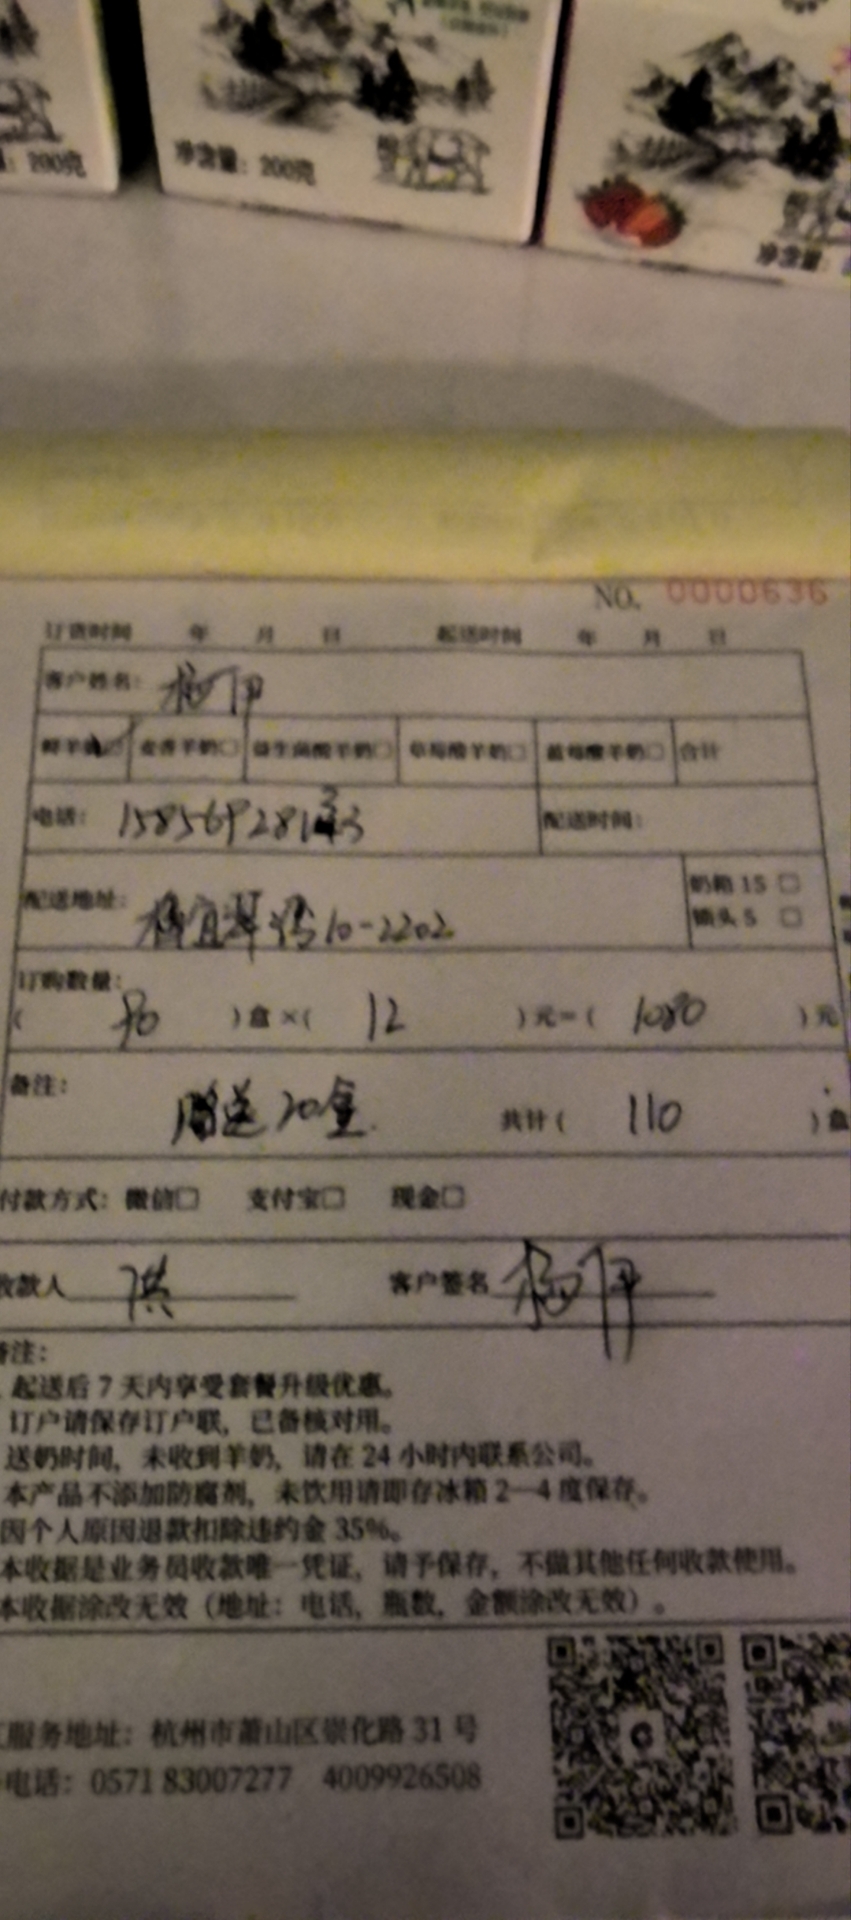 净含量：200克
净含量：200克
净含量：
NO. 0000636
订货时间 年 月 日 起送时间 年 月 日
客户姓名：杨
鲜羊奶☑ 麦香羊奶□ 益生菌酸羊奶□ 草莓酸羊奶□ 蓝莓酸羊奶□ 合计
电话： 配送时间：
配送地址： 10-2202
奶箱 15 □
锁头 5 □
订购数量：
（ 90 ）盒 ×（ 12 ）元＝（ 1080 ）元
备注：
赠送20盒 共计（ 110 ）盒
付款方式：微信□ 支付宝□ 现金□
收款人 洪 客户签名 杨
备注：
起送后 7 天内享受套餐升级优惠。
订户请保存订户联，已备核对用。
送奶时间，未收到羊奶，请在 24 小时内联系公司。
本产品不添加防腐剂，未饮用请即存冰箱 2—4 度保存。
因个人原因退款扣除违约金 35%。
本收据是业务员收款唯一凭证，请予保存，不做其他任何收款使用。
本收据涂改无效（地址：电话，瓶数，金额涂改无效）。
服务地址：杭州市萧山区崇化路 31 号
电话：0571 83007277 4009926508